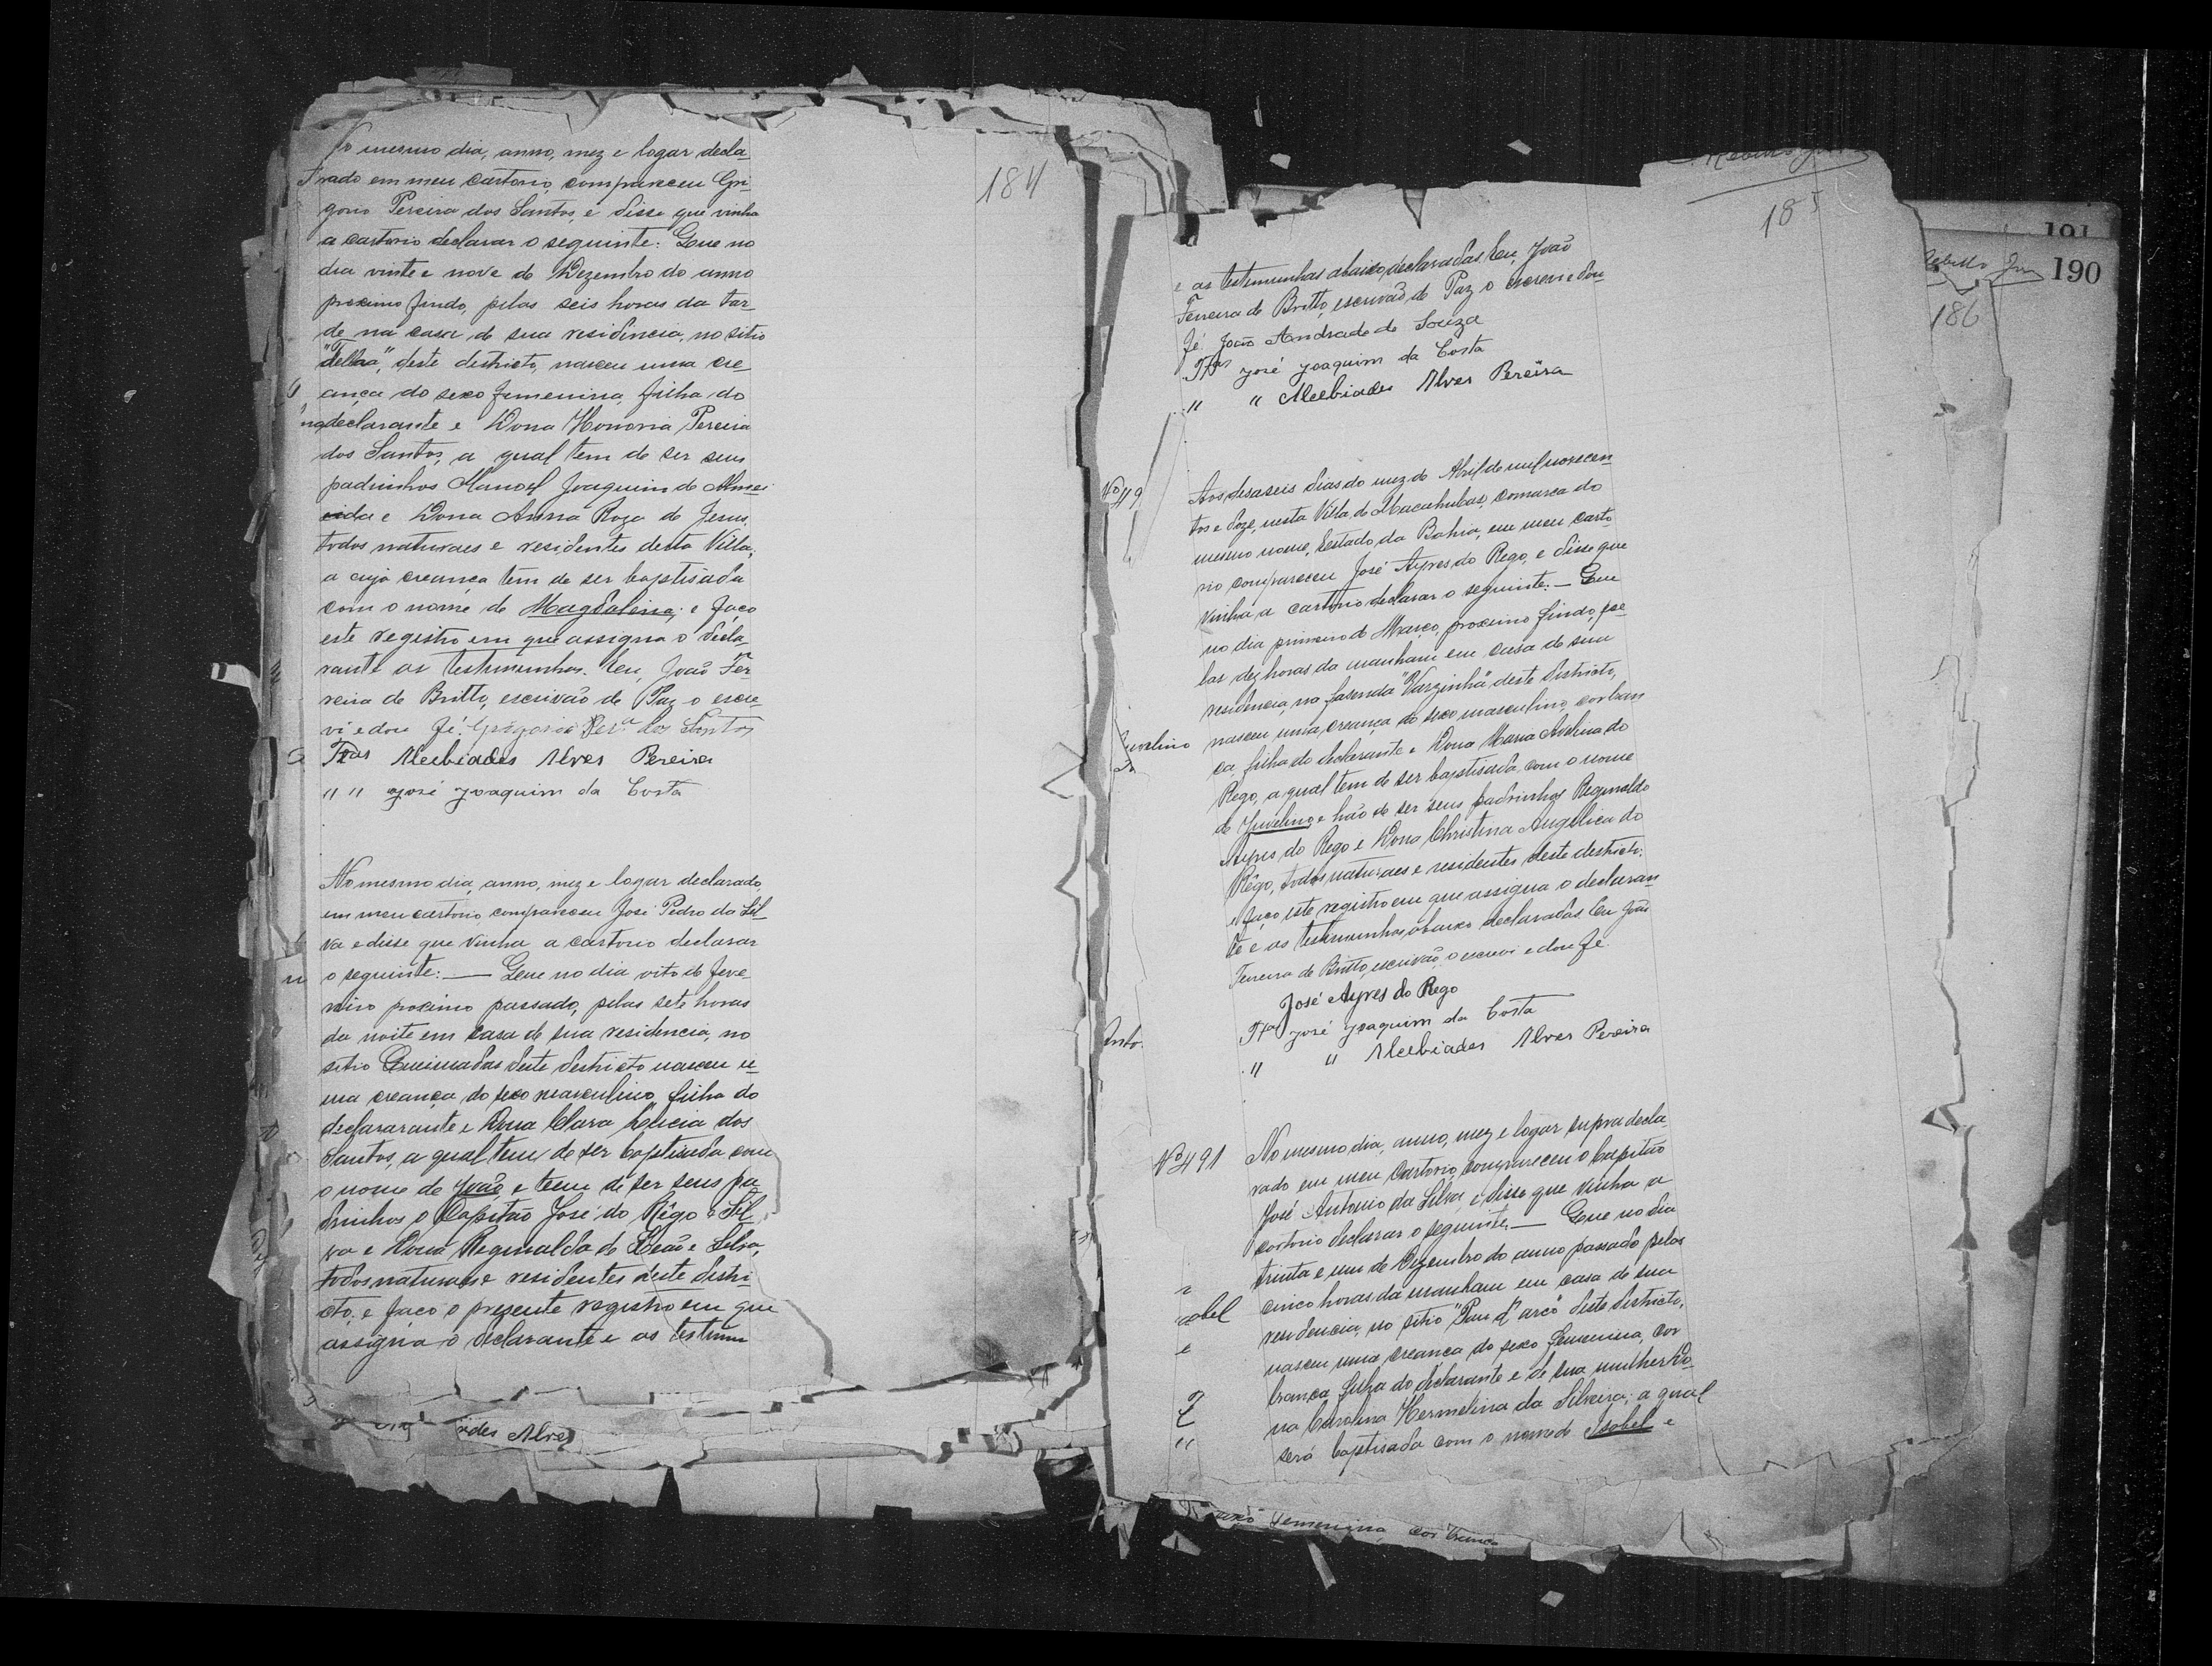 184
No mesmo dia, anno, mez e logar decla-
rado em meu cartorio, compareceu Gri-
gorio Pereira dos Santos, e disse que vinha
a cartorio declarar o seguinte: Que no
dia vinte e nove de Dezembro do anno
proximo findo, pelas seis horas da tar-
de na casa de sua residencia, no sitio
deste destricto, nasceu uma cre-
ança do sexo femenina, filha do
declarante e Dona Honoria Pereira
dos Santos, a qual tem de ser seus
padrinhos Manoel Joaquim de Alme-
eida e Dona Anna Roza de Jesus,
todos naturaes e residentes desta Villa,
a cuja creança tem de ser baptisada
com o nome de Magdalena; e faço
este registro em que assigna o decla-
rante as testemunhas. Eu, João Fer-
reira de Britto, escrivão de Paz o escre-
vi e dou fé. Grigorio Per.ª dos Santos
Ttas Alcebiades Alves Pereira
" " José Joaquim da Costa
No mesmo dia, anno, mez e logar declarado,
em meu cartorio compareceu José Pedro da Sil-
va e disse que vinha a cartorio declarar
o seguinte: — Que no dia oito de feve-
reiro proximo passado, pelas sete horas
da noite em casa de sua residencia, no
sitio Queimadas deste destricto nasceu u-
ma creança do sexo masculino, filha do
declararante e Dona Clara Lucia dos
Santos, a qual tem de ser baptisada com
o nome de João e teem de ser seus pa-
drinhos o Capitão José do Rêgo e Sil-
va e Dona Reginalda de Leão e Silva,
todos naturaes e residentes deste destri-
cto, e faço o prezente registro em que
assigna o declarante e as testemu
ides Alves
185
e as testemunhas abaixo declaradas. Eu, João
Ferreira de Britto, escrivão de Paz o escrevi e dou
fé. João Andrade de Souza
Ttas José Joaquim da Costa
" " Alcebiades Alves Pereira
Nº 49
Aos desaseis dias do mez de Abril de mil novecen-
tos e doze, nesta Villa de Macahubas, comarca do
mesmo nome, Estado da Bahia, em meu carto-
rio compareceu José Ayres do Rego, e disse que
vinha a cartorio declarar o seguinte: — Que
no dia primeiro de Março, proximo findo, pe-
las dez horas da manham em casa de sua
residencia, na fasenda "Varzinha" deste districto,
Juvelino
nasceu uma creança do sexo masculino, cor bran
ca, filha do declarante e Dona Maria Avelina do
Rego, a qual tem de ser baptisada com o nome
de Juvelino e hão de ser seus padrinhos Reginaldo
Ayres do Rego e Dona Christina Angelica do
Rêgo, todos naturaes e residentes deste destricto;
e faço este registro em que assigna o declaran-
te e as testemunhas abaixo declaradas. Eu João
Ferreira de Britto, escrivão o escrevi e dou fé.
José Ayres do Rego
Ttas José Joaquim da Costa
" " Alcebiades Alves Pereira
Nº 491
No mesmo dia, anno, mez e logar supra decla-
rado em meu cartorio, compareceu o Capitão
José Antonio da Silva, e disse que vinha a
cartorio declarar o seguinte: — Que no dia
trinta e um de Dezembro do anno passado pelas
cinco horas da manham em casa de sua
residencia, no sitio "Pau d'arco" deste destricto,
nasceu uma creança do sexo femenina, cor
branca filha do declarante e de sua mulher Do-
na Carolina Hermelina da Silveira; a qual
será baptisada com o nome de Isabel e
sexo femenina cor branca
191
190
186